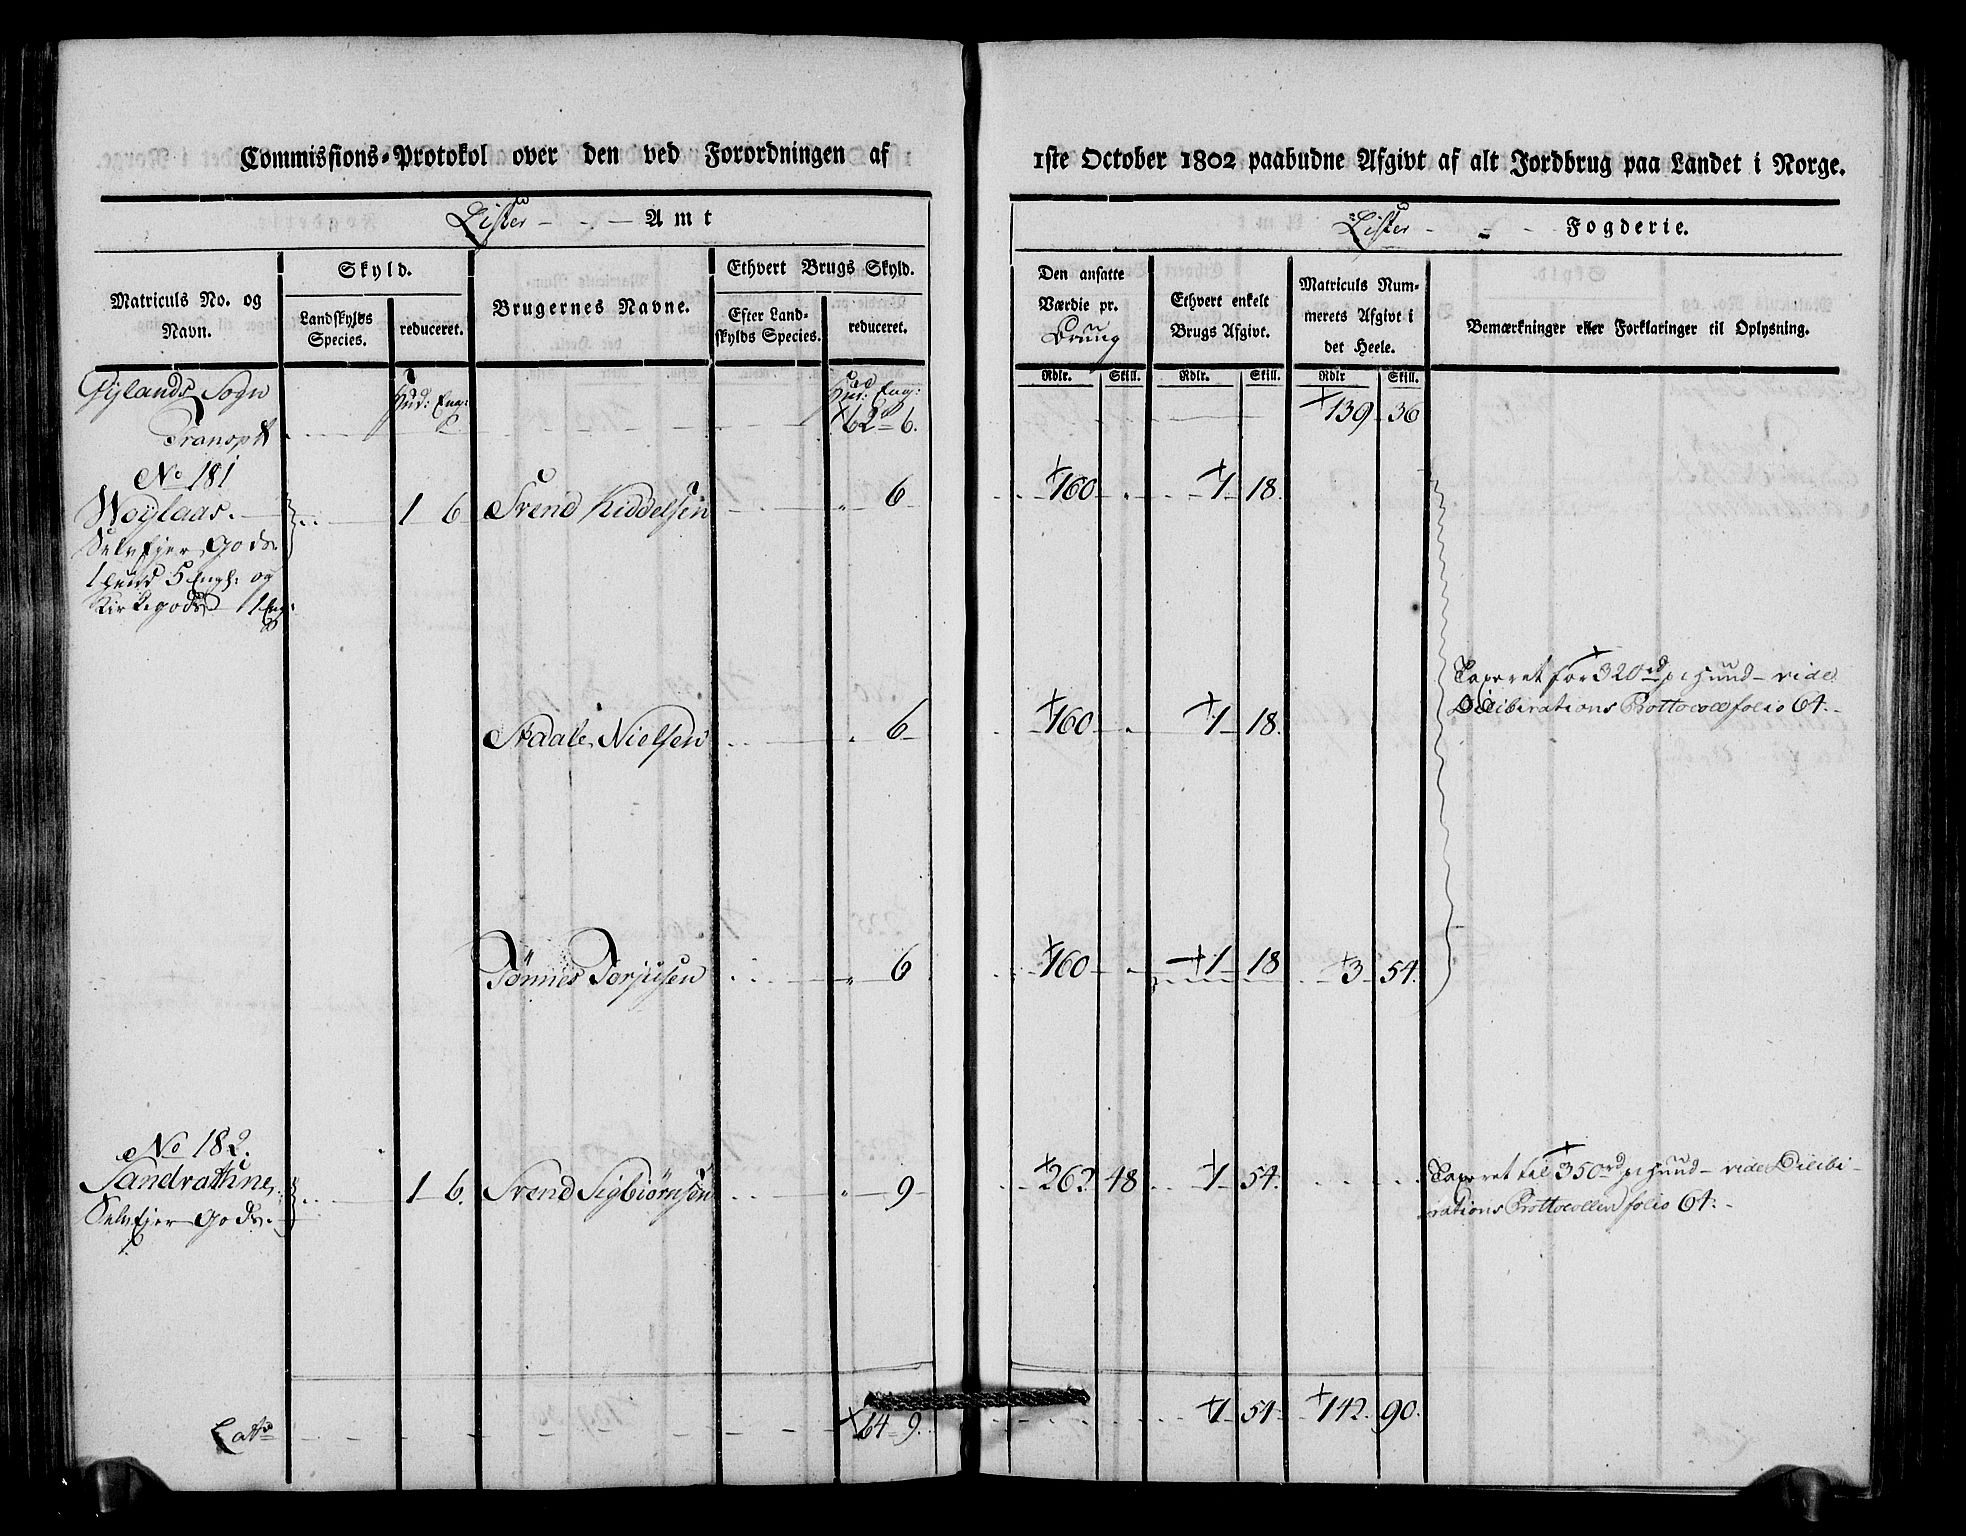 Commissions-Protokol over den ved Forordningen af
Lister Amt
Matriculs No. og Navn.
Skyld.
Landskylds Species.
reduceret.
Brugernes Navne.
Ethvert Brugs Skyld.
Efter Landskylds Species.
reduceret.
Gylands Sogn Hud: Eng: Hud: Eng:
Transpt 62 - 6.
No 181
1 6 Svend Kiddelsen 6
Selvejer Gods
1 Hud 5 Engh: og
Kirkegods 1 Eng:
Staale Nielsen 6
Tønnes Torjusen 6
No 182.
1 6. Svend Sigbiørnsen 9
Selvejer Gods.
Lats 64 - 9.
1ste October 1802 paabudne Afgivt af alt Jordbrug paa Landet i Norge.
Lister Fogderie.
Den ansatte Værdie pr.
Ethvert enkelt Brugs Afgivt.
Matriculs Nummerets Afgivt i det Heele.
Bemærkninger eller Forklaringer til Oplysning.
Rdlr. Skill. Rdlr. Skill. Rdlr Skill.
139 - 36
160 - 1 18.
Taxeret for 320 rd pr Huud - vide
Deliberations Prottocoll folio 64.
160 - 1 18.
160 - 1 18 3 54.
262 48 1 54.
Taxeret til 350 rd pr Huud - vide Delibe-
rations Prottocollen folio 64.
1 54 142 90.